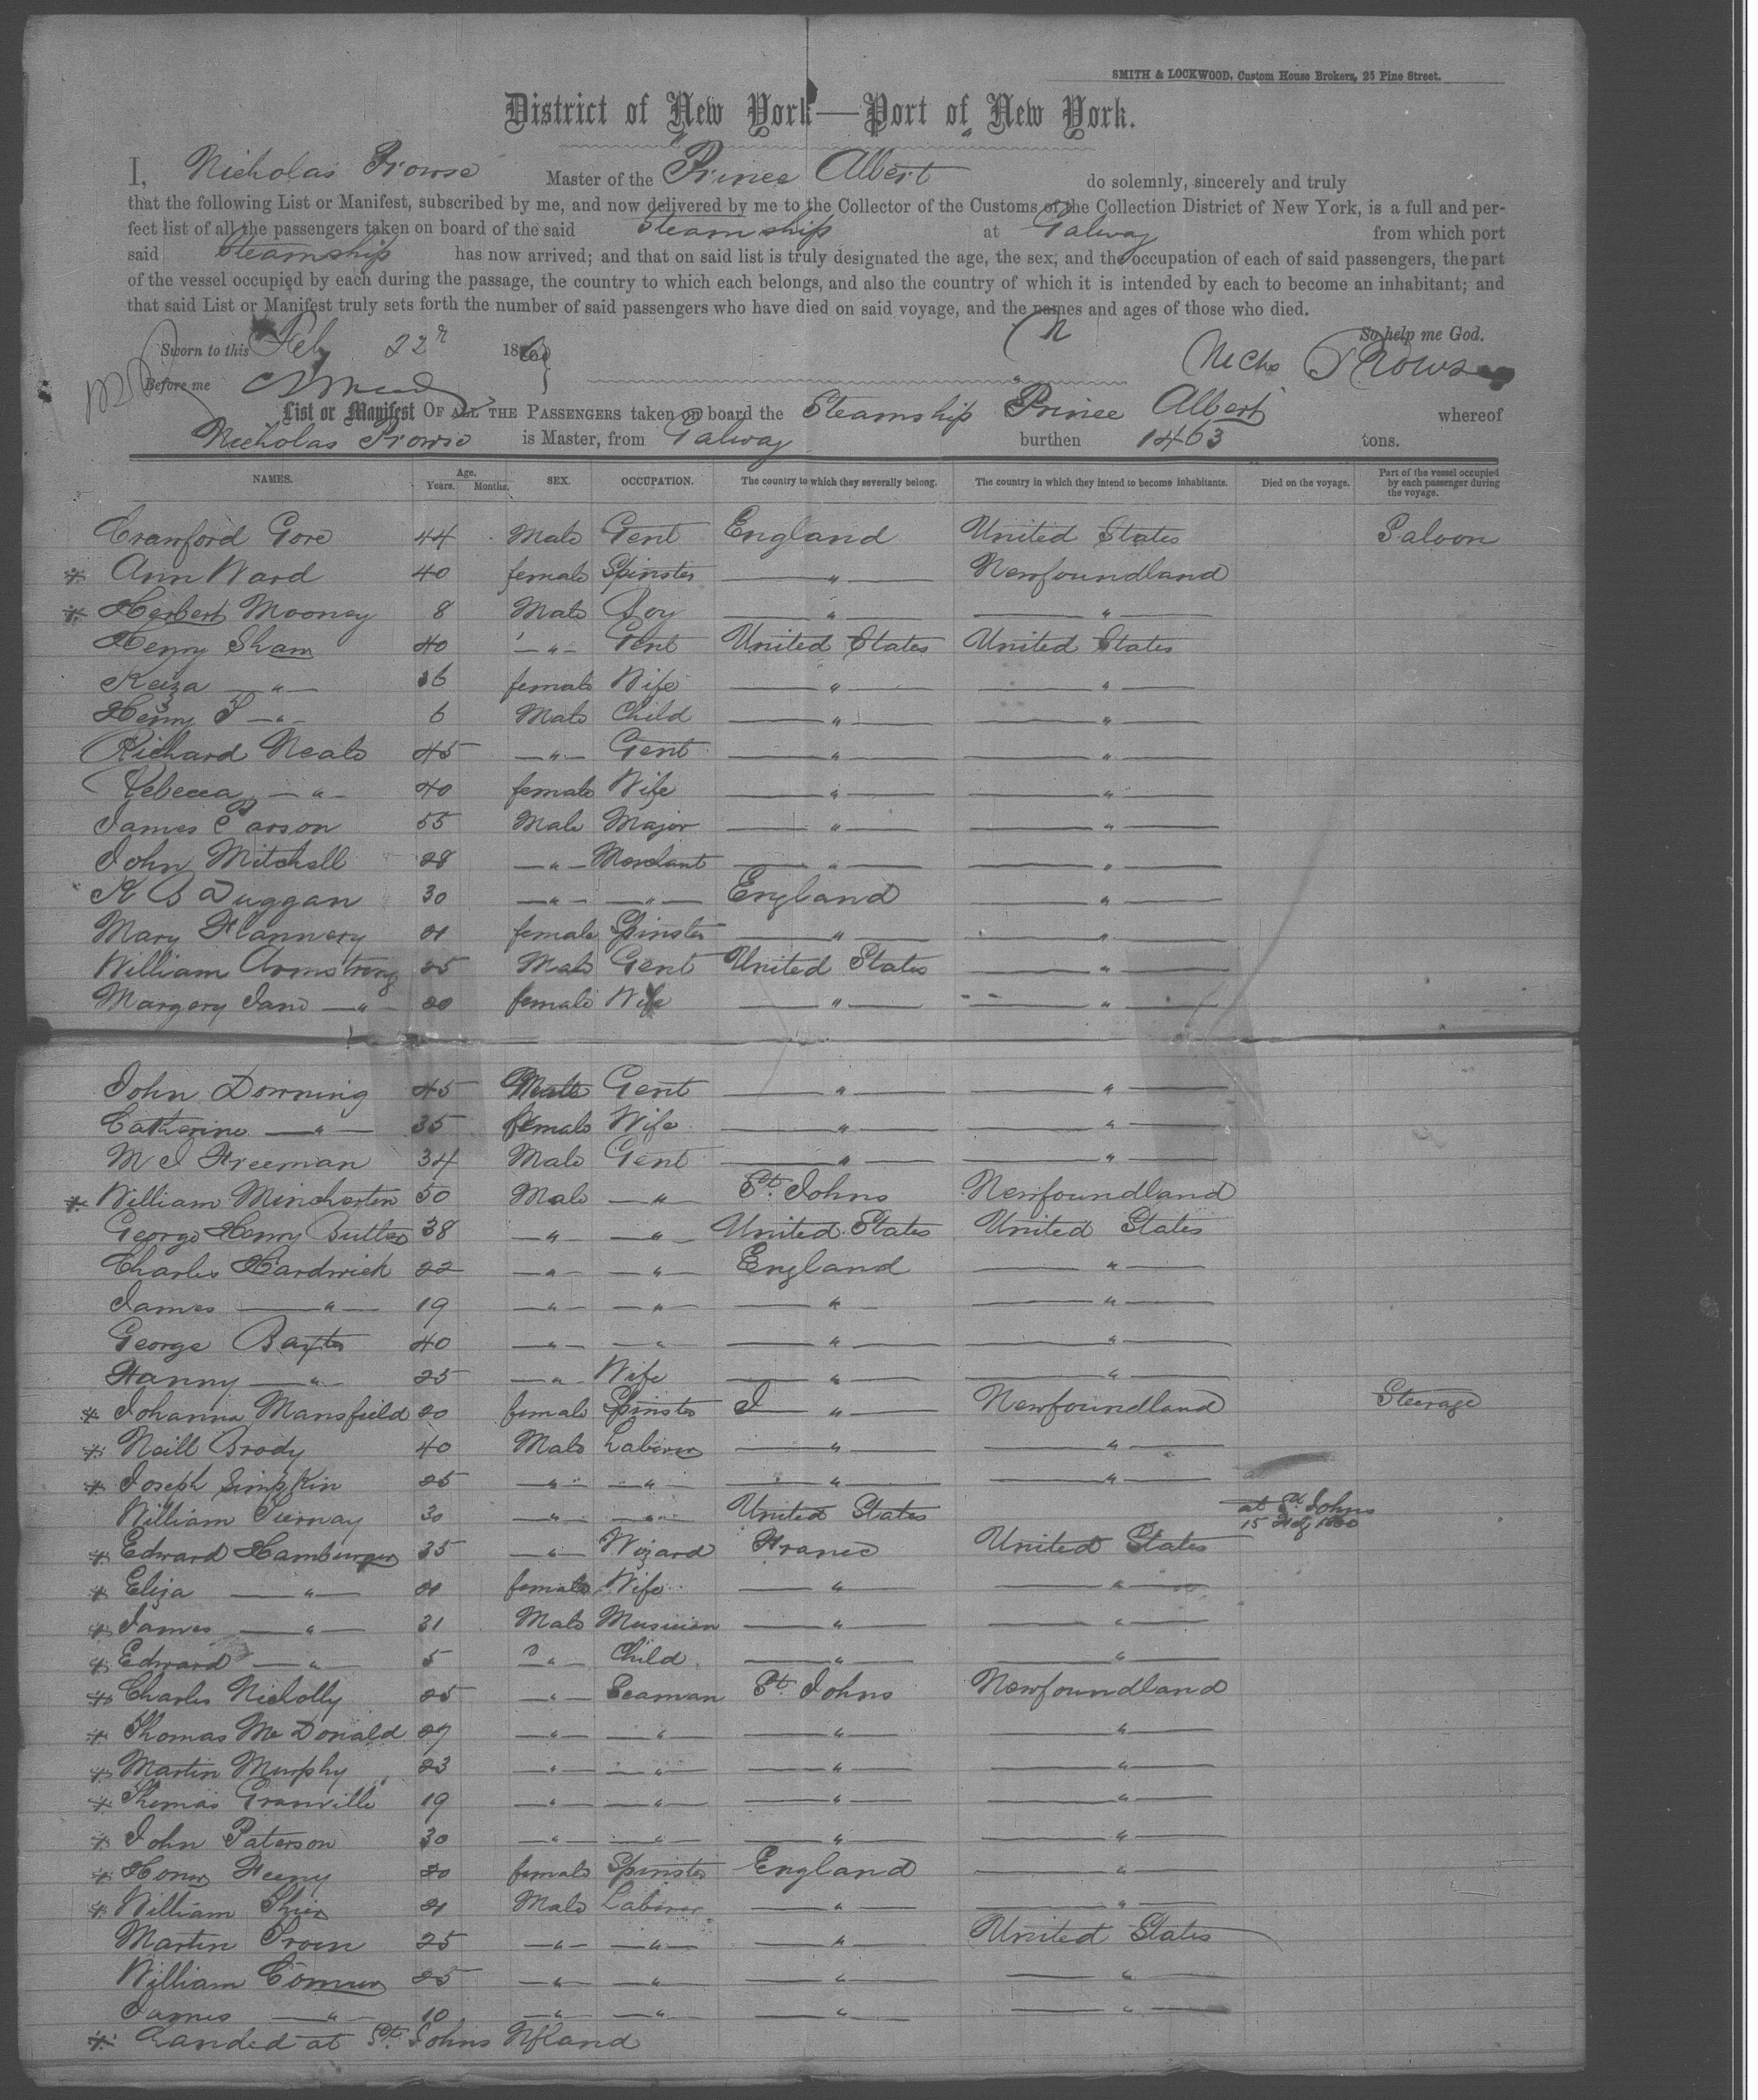 SMITH & LOCKWOOD, Custom House Brokers, 25 Pine Street.
District of New York—Port of New York.
I, Nicholas Prowse Master of the Prince Albert do solemnly, sincerely and truly
that the following List or Manifest, subscribed by me, and now delivered by me to the Collector of the Customs of the Collection District of New York, is a full and per-
fect list of all the passengers taken on board of the said Steamship at Galway from which port
said Steamship has now arrived; and that on said list is truly designated the age, the sex, and the occupation of each of said passengers, the part
of the vessel occupied by each during the passage, the country to which each belongs, and also the country of which it is intended by each to become an inhabitant; and
that said List or Manifest truly sets forth the number of said passengers who have died on said voyage, and the names and ages of those who died.
So help me God.
Sworn to this Feby 22 1860
Nichs Prowse
Before me
List or Manifest OF ALL THE PASSENGERS taken on board the Steamship Prince Albert whereof
Nicholas Prowse is Master, from Galway burthen 1463 tons.
NAMES. Age. Years. Months. SEX. OCCUPATION. The country to which they severally belong. The country in which they intend to become inhabitants. Died on the voyage. Part of the vessel occupied by each passenger during the voyage.
Crawford Gore 44 Male Gent England United States Saloon
* Ann Ward 40 female Spinster " Newfoundland
* Herbert Mooney 8 Male Boy " "
Henry Sham 40 " Gent United States United States
Keiza " 36 female Wife " "
Henry S " 6 Male Child " "
Richard Neale 45 " Gent " "
Rebecca " 40 female Wife " "
James Carson 55 Male Major " "
John Mitchell 28 " Merchant " "
K B Duggan 30 " " England "
Mary Flannery 21 female Spinster " "
William Armstrong 25 Male Gent United States "
Margery Jane " 20 female Wife " "
John Downing 45 Male Gent " "
Catherine " 35 female Wife " "
M J Freeman 34 Male Gent " "
* William Mincharten 50 Male " St. Johns Newfoundland
George Henry Butler 38 " " United States United States
Charles Hardwick 22 " " England "
James " 19 " " " "
George Baxter 40 " " " "
Fanny " 25 " Wife " "
* Johanna Mansfield 20 female Spinster I " Newfoundland Steerage
* Neill Brody 40 Male Laborer " "
* Joseph Simpkin 25 " " " "
William Tiernay 30 " " United States at St Johns
15 Feby 1860
* Edward Hamburger 35 " Wizard France United States
* Eliza " 21 female Wife " "
* James " 31 Male Musician " "
* Edward " 5 " Child " "
* Charles Nicholly 25 " Seaman St. Johns Newfoundland
* Thomas McDonald 27 " " " "
* Martin Murphy 23 " " " "
* Thomas Granville 19 " " " "
* John Paterson 30 " " " "
* Honor Feeny 20 female Spinster England "
* William 21 Male Laborer " "
Martin 25 " " " United States
William Connor 25 " " " "
James " 10 " " " "
* Landed at St. Johns Nfland